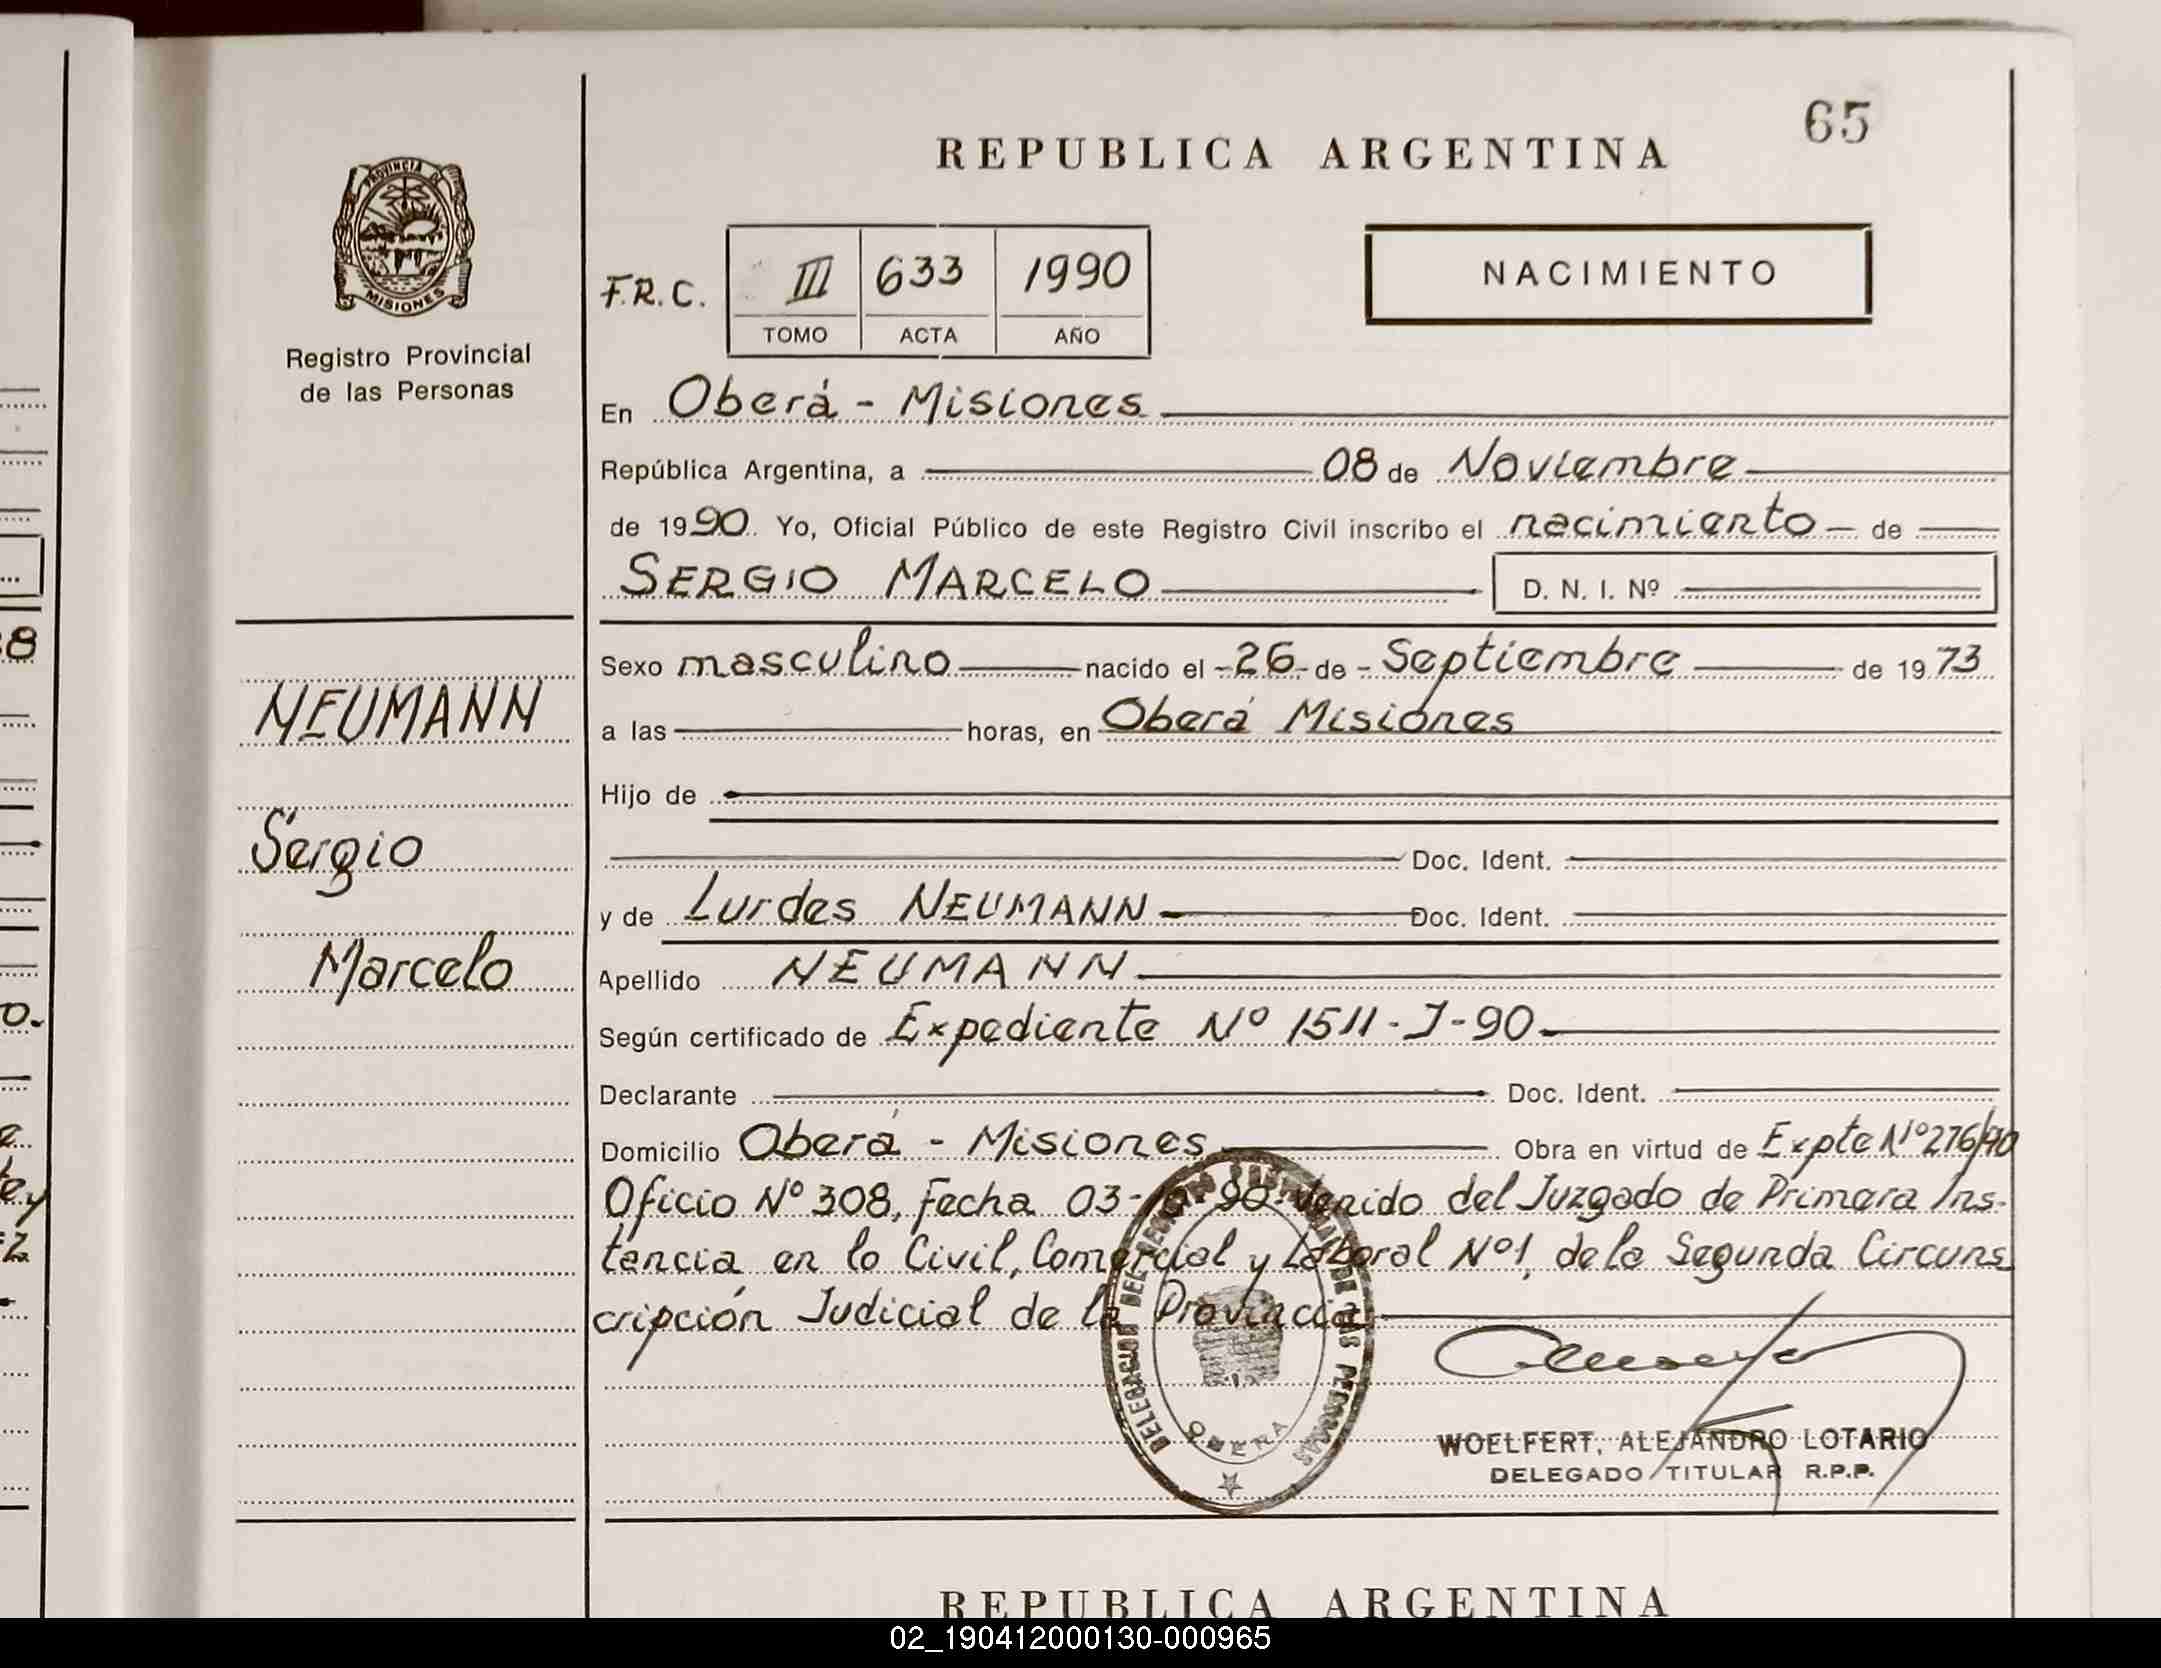 65
REPUBLICA ARGENTINA
PROVINCIA DE
MISIONES
Registro Provincial
de las Personas
F.R.C. III 633 1990
TOMO ACTA AÑO
NACIMIENTO
En Oberá - Misiones
República Argentina, a 08 de Noviembre
de 1990. Yo, Oficial Público de este Registro Civil inscribo el nacimiento de
SERGIO MARCELO D. N. I. Nº
NEUMANN
Sergio
Marcelo
Sexo masculino nacido el 26 de Septiembre de 1973
a las horas, en Oberá Misiones
Hijo de
Doc. Ident.
y de Lurdes NEUMANN Doc. Ident.
Apellido NEUMANN
Según certificado de Expediente Nº 1511-J-90
Declarante Doc. Ident.
Domicilio Oberá - Misiones Obra en virtud de Expte Nº 276/90
Oficio Nº 308, Fecha 03-10-90 Venido del Juzgado de Primera Ins-
tancia en lo Civil, Comercial y Laboral Nº1, de la Segunda Circuns
cripción Judicial de la Provincia
DELEGACION DEL REGISTRO PROVINCIAL DE LAS PERSONAS
OBERA
WOELFERT, ALEJANDRO LOTARIO
DELEGADO TITULAR R.P.P.
REPUBLICA ARGENTINA
02_190412000130-000965